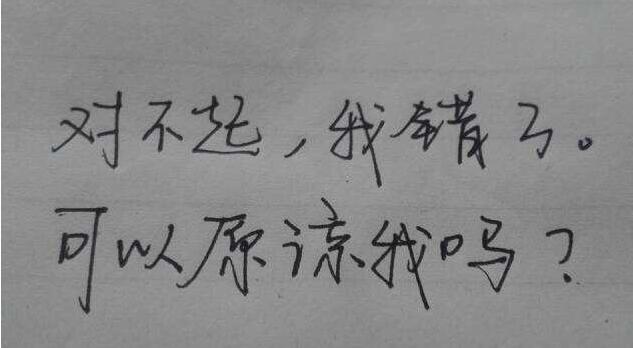 对不起,我错了。
可以原谅我吗?